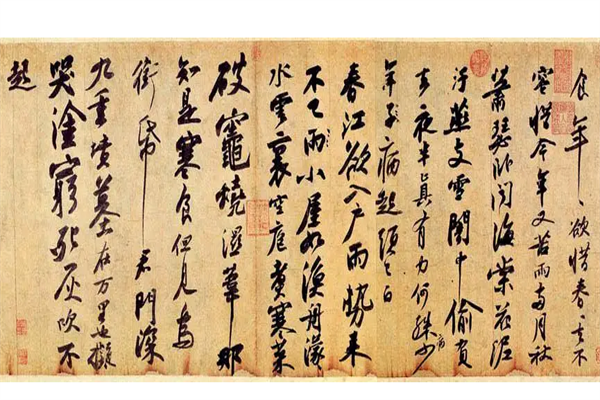 食年〻欲惜春〻去不
容惜今年又苦雨兩月秋
蕭瑟卧聞海棠花泥
汙燕支雪闇中偷負
去夜半真有力何殊病少
年子病起頭已白
春江欲入戶雨勢來
不已雨小屋如漁舟濛〻
水雲裏空庖煮寒菜
破竈燒濕葦那
知是寒食但見烏
銜帋君門深
九重墳墓在万里也擬
哭塗窮死灰吹不
起